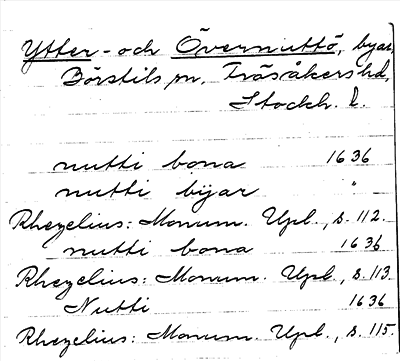 Ytter- och Övernuttö, byar,
Börstils sn, Frösåkers hd,
Stockh. l.
nutti bona 1636
nutti byar "
Rhezelius: Monum. Upl., s. 112.
nutti bona 1636
Rhezelius: Monum. Upl., s. 113.
Nutti 1636
Rhezelius: Monum. Upl., s. 115.